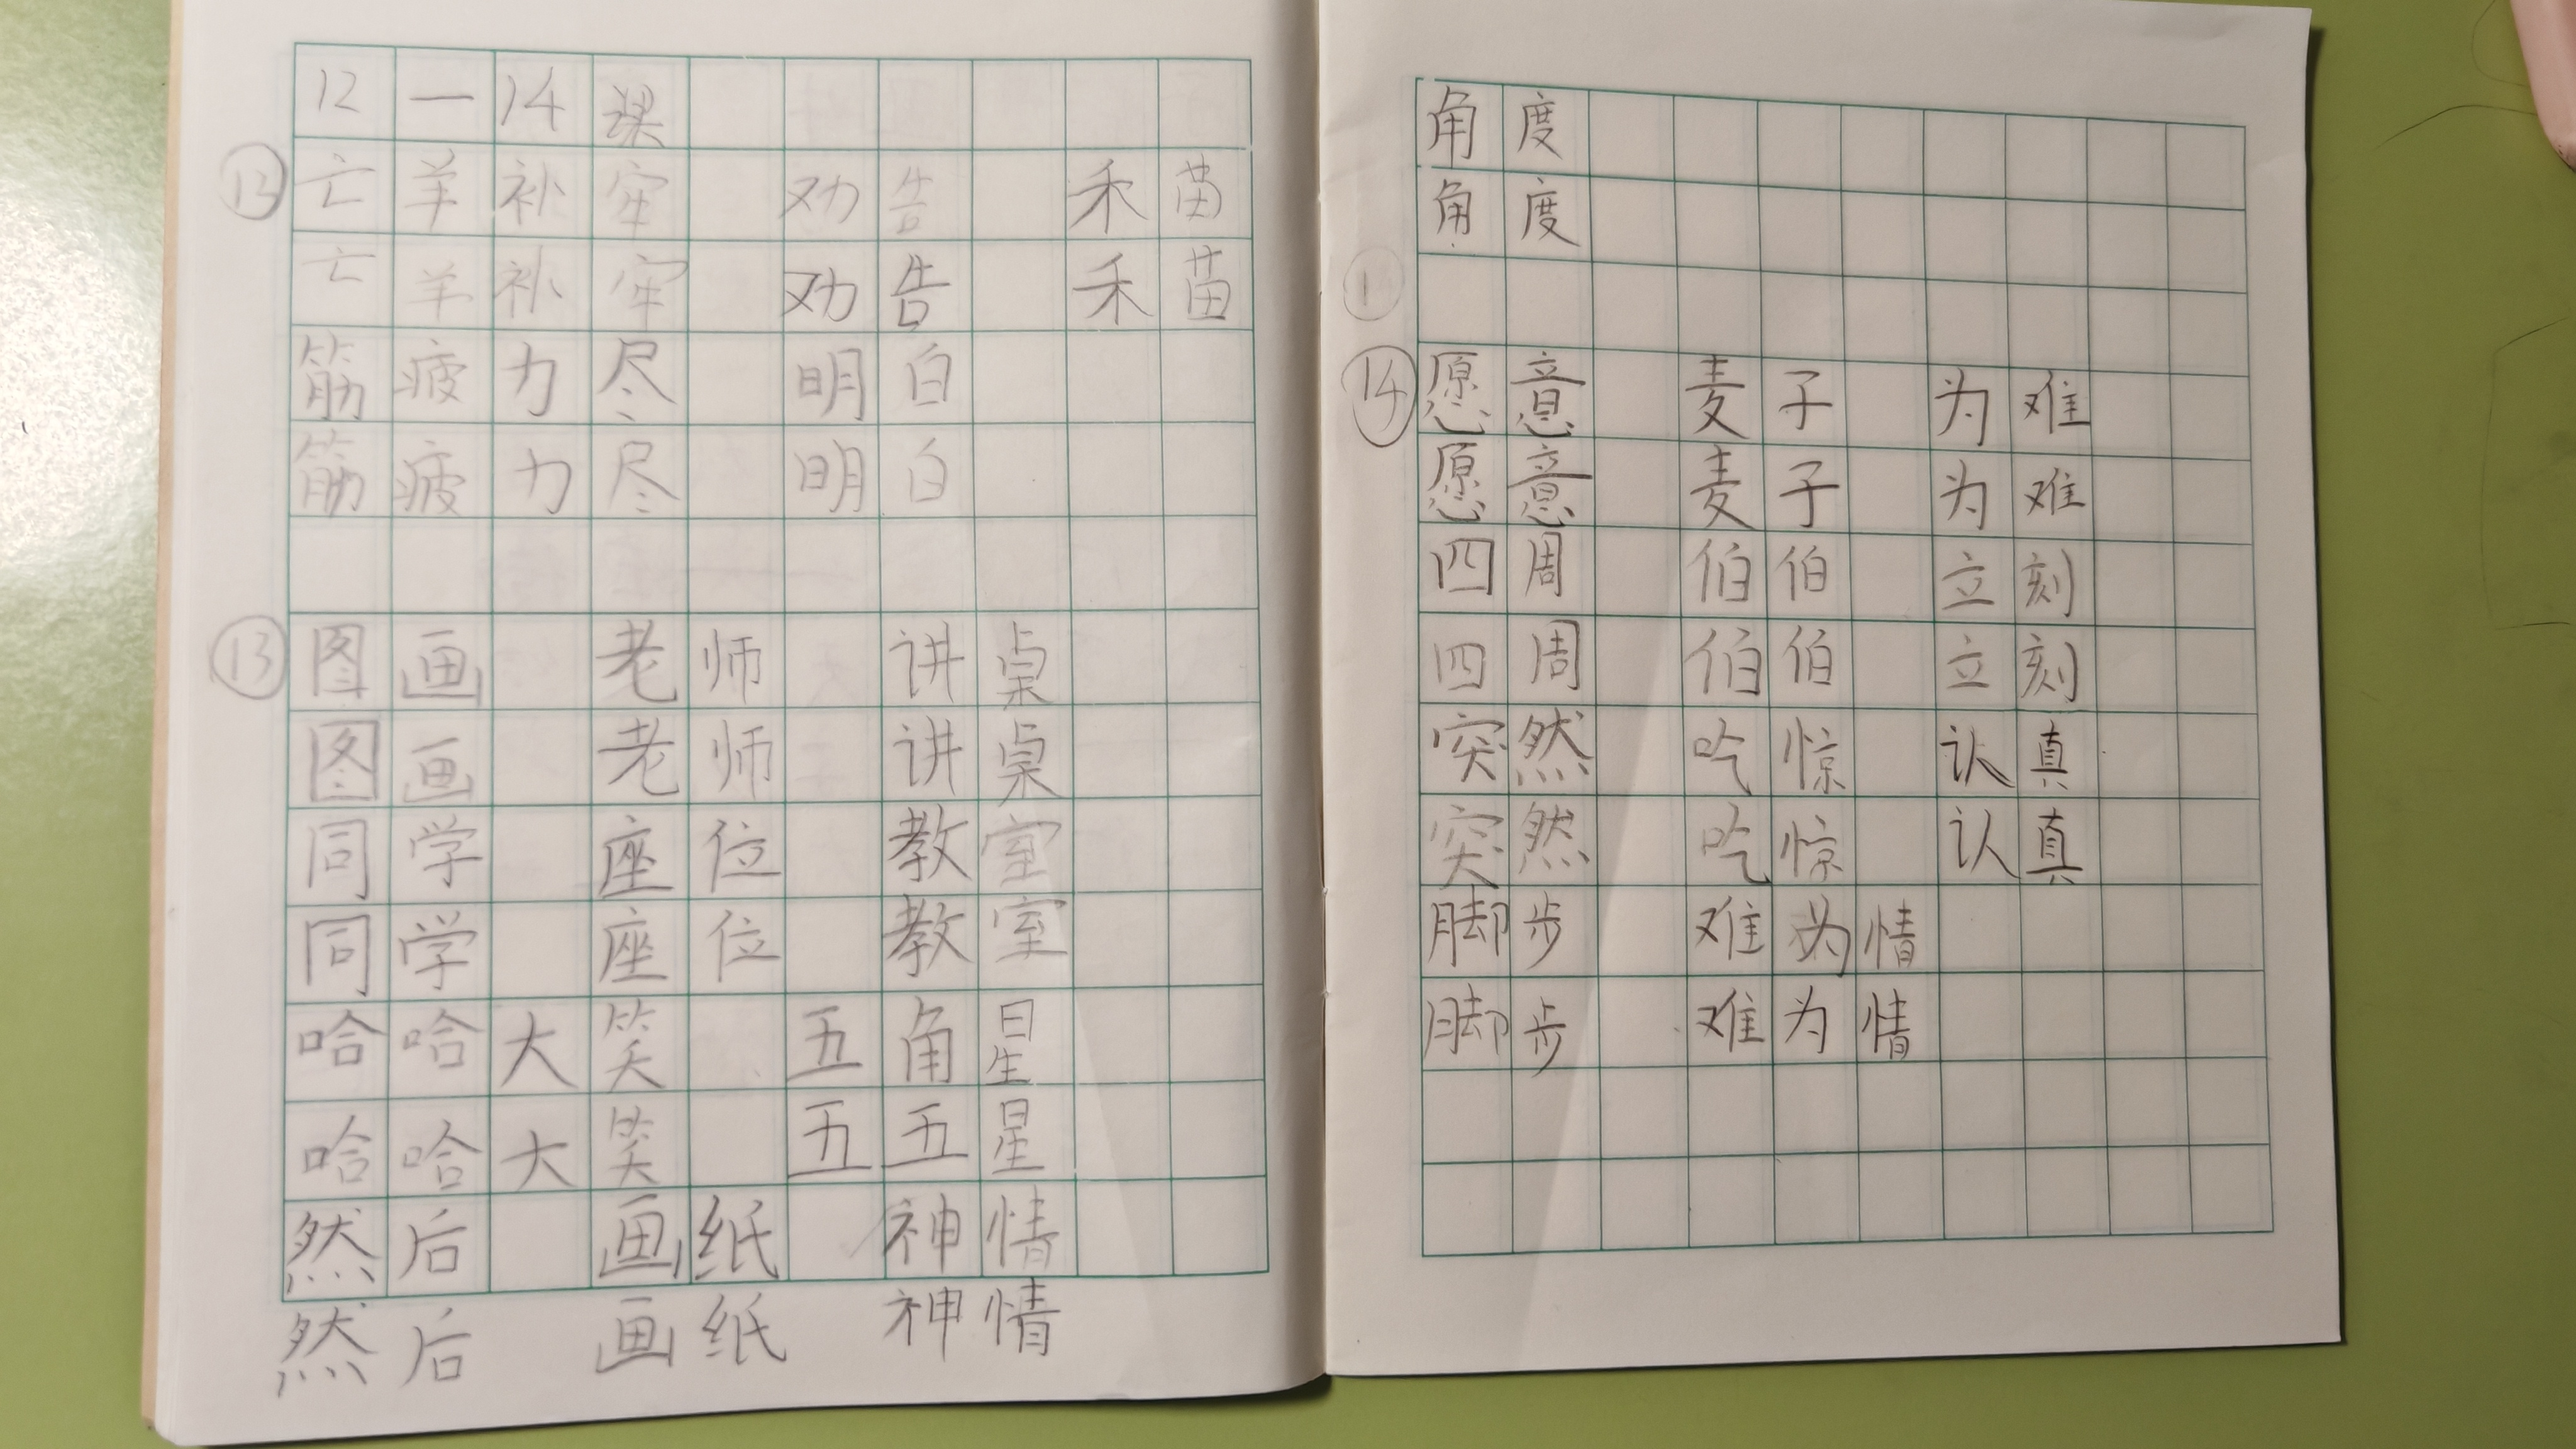 12 — 14 课
⑫ 亡羊补牢 劝告 禾苗
亡羊补牢 劝告 禾苗
筋疲力尽 明白
筋疲力尽 明白
⑬ 图画 老师 讲桌
图画 老师 讲桌
同学 座位 教室
同学 座位 教室
哈哈大笑 五角星
哈哈大笑 五五星
然后 画纸 神情
然后 画纸 神情
角度
角度
⑭ 愿意 麦子 为难
愿意 麦子 为难
四周 伯伯 立刻
四周 伯伯 立刻
突然 吃惊 认真
突然 吃惊 认真
脚步 难为情
脚步 难为情